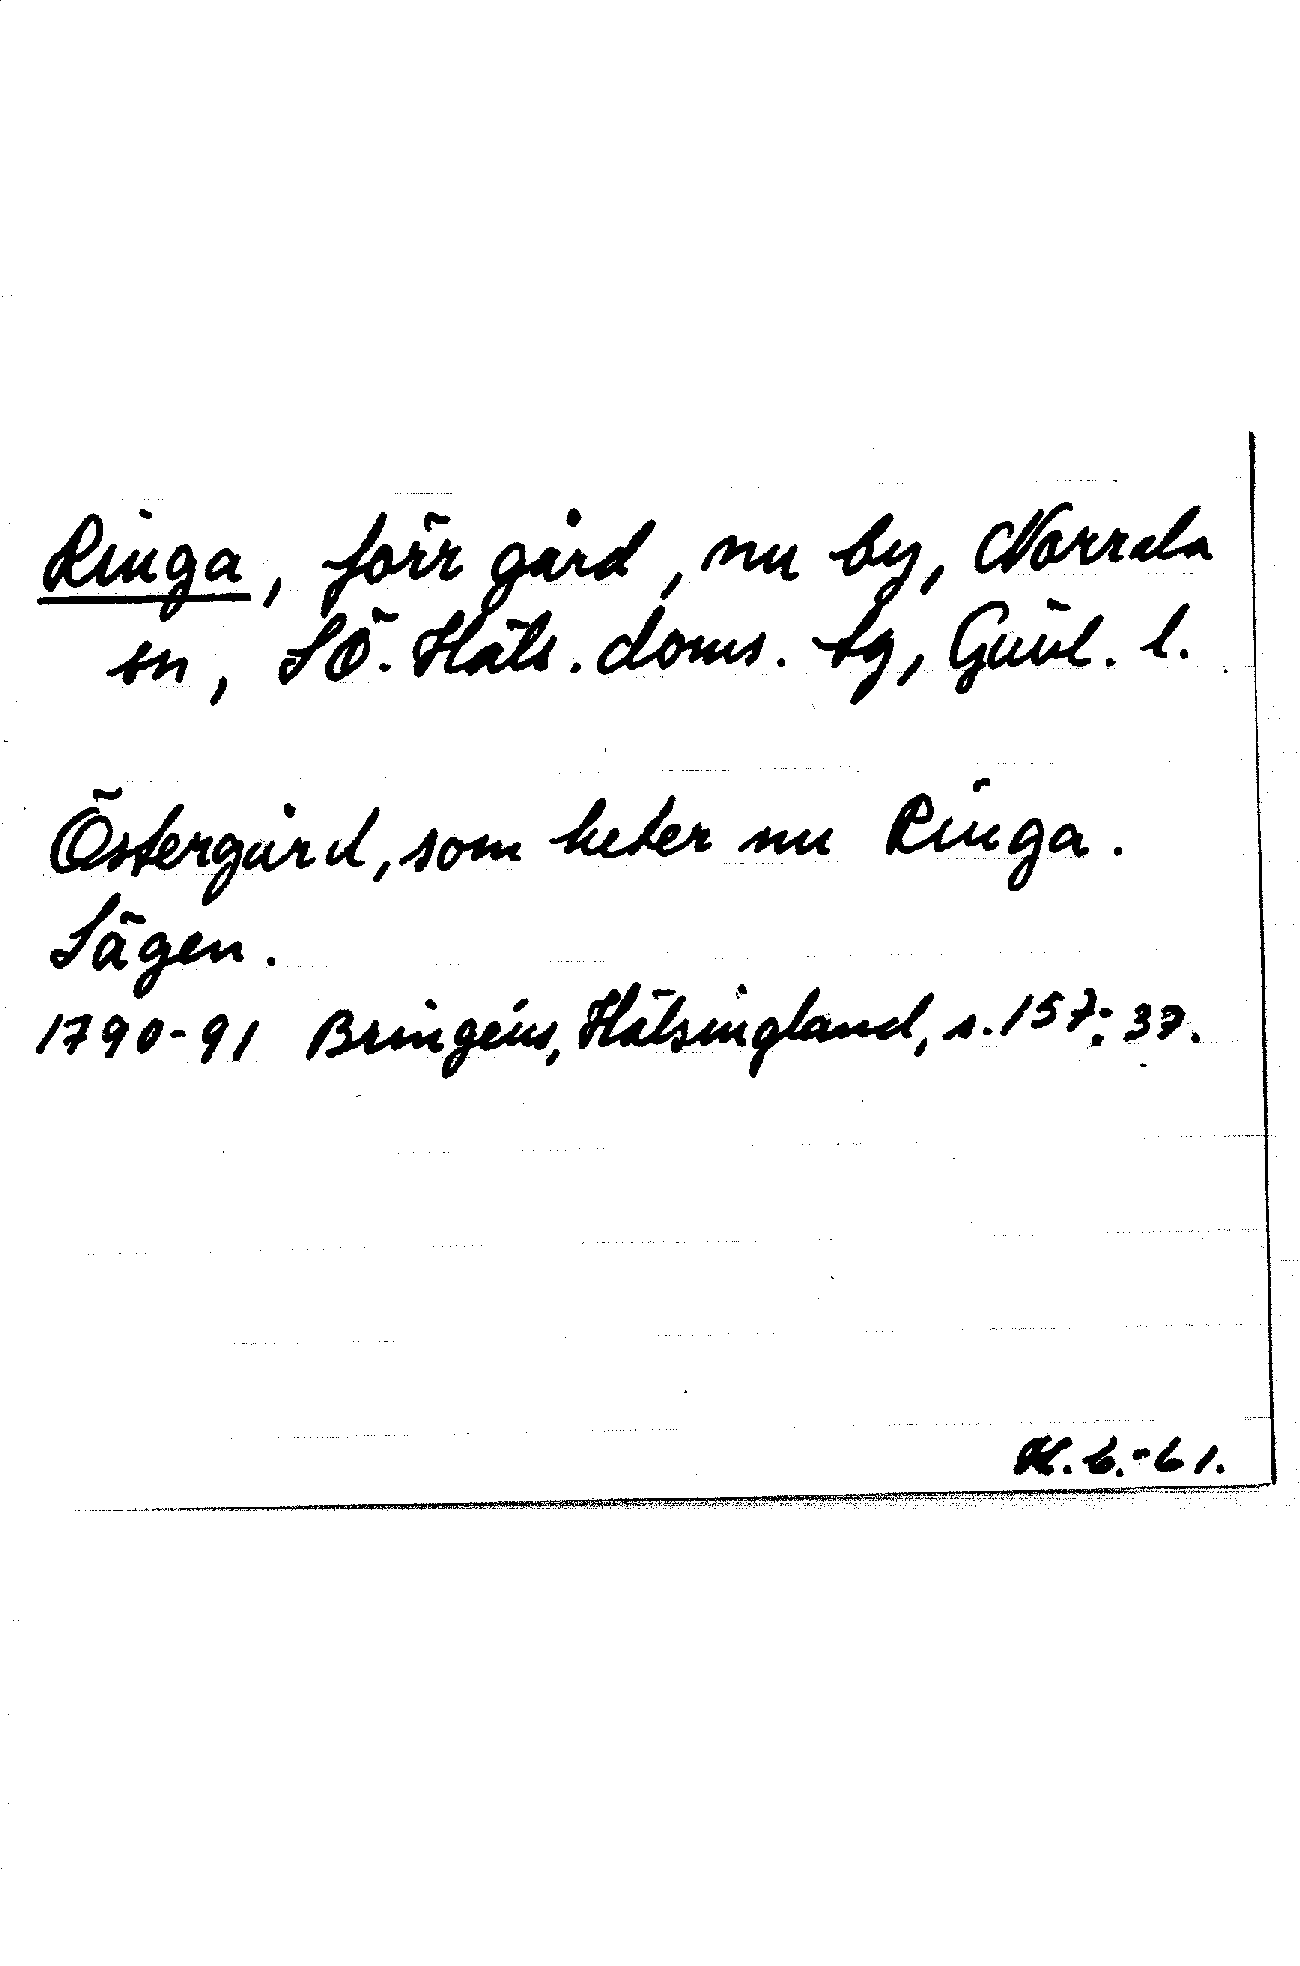 Ringa, förr gård, nu by, Norrala
sn, SÖ. Häls. doms. tg, Gävl. l.
Östergård, som heter nu Ringa.
Sägen.
1790-91 Bringéus, Hälsingland, s. 157: 37.
H. b. -61.